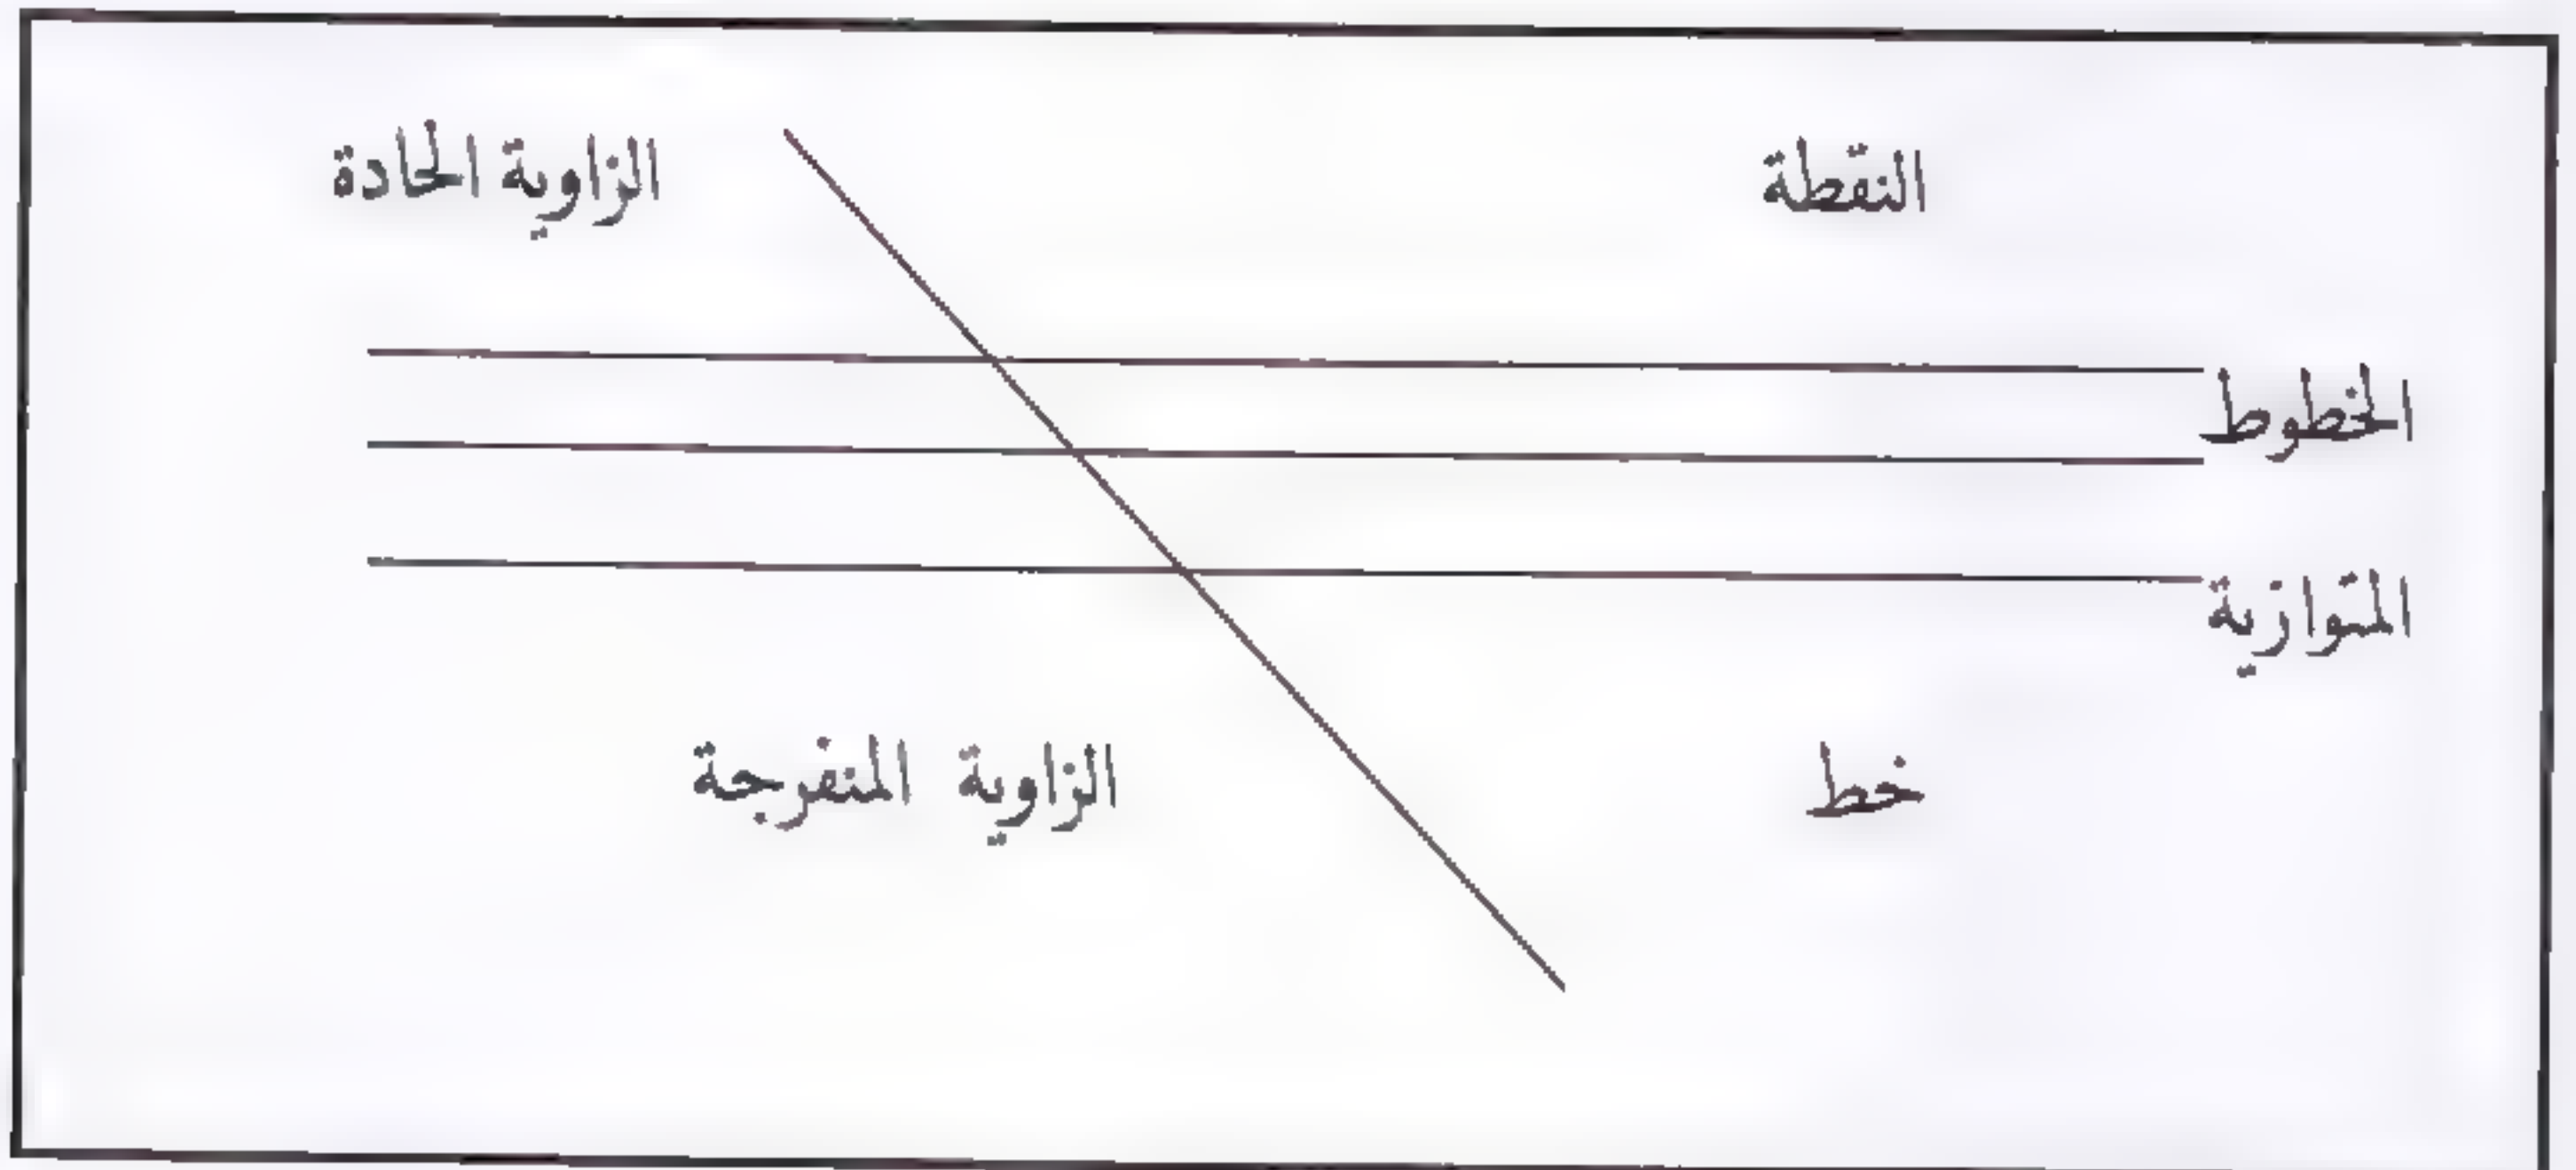 النقطة
الزاوية الحادة
الخطوط
المتوازية
خط
الزاوية المنفرجة